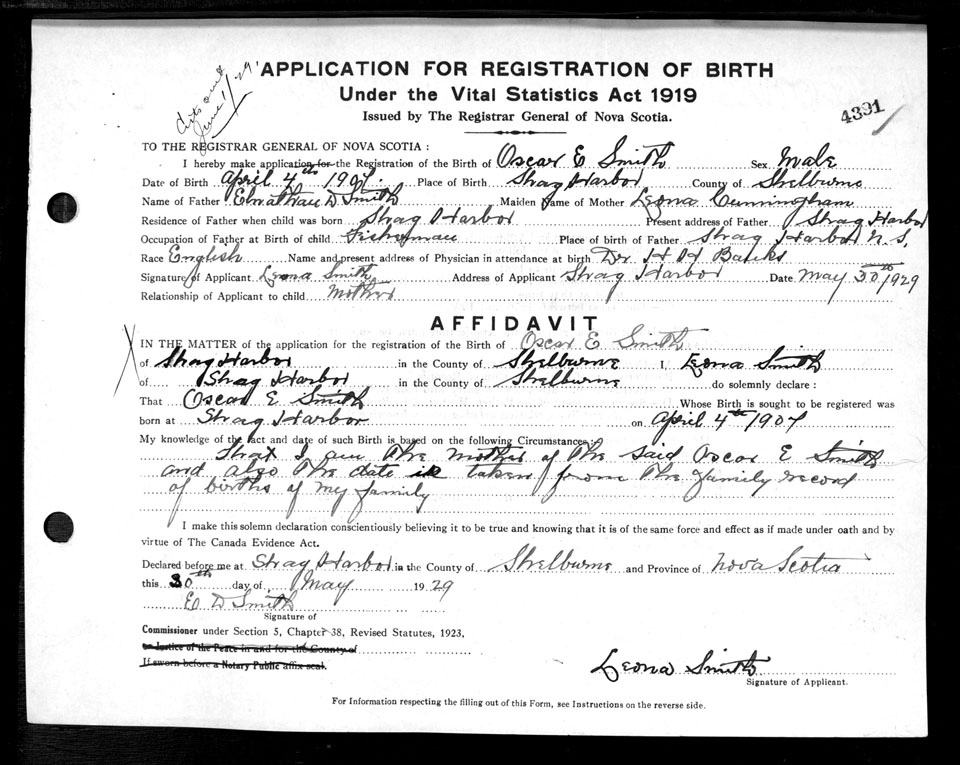 June 1/29
APPLICATION FOR REGISTRATION OF BIRTH
Under the Vital Statistics Act 1919
Issued by The Registrar General of Nova Scotia.
4391
TO THE REGISTRAR GENERAL OF NOVA SCOTIA :
I hereby make application for the Registration of the Birth of Oscar E Smith Sex Male
Date of Birth April 4th 1907. Place of Birth Shag Harbor County of Shelburne
Name of Father Elnathan D Smith Maiden Name of Mother Leona Cunningham
Residence of Father when child was born Shag Harbor Present address of Father Shag Harbor
Occupation of Father at Birth of child Fisherman Place of birth of Father Shag Harbor N.S,
Race English Name and present address of Physician in attendance at birth Dr H H Banks
Signature of Applicant Leona Smith Address of Applicant Shag Harbor Date May 30th 1929
Relationship of Applicant to child Mother
AFFIDAVIT
IN THE MATTER of the application for the registration of the Birth of Oscar E Smith
of Shag Harbor in the County of Shelburne I, Leona Smith
of Shag Harbor in the County of Shelburne do solemnly declare :
That Oscar E Smith Whose Birth is sought to be registered was
born at Shag Harbor on April 4th 1907
My knowledge of the fact and date of such Birth is based on the following Circumstances :
That I am the mother of the said Oscar E Smith
and also the date is taken from the family record
of births of my family
I make this solemn declaration conscientiously believing it to be true and knowing that it is of the same force and effect as if made under oath and by
virtue of The Canada Evidence Act.
Declared before me at Shag Harbor in the County of Shelburne and Province of Nova Scotia
this 30th day of May 1929
E D Smith
Signature of
Commissioner under Section 5, Chapter 38, Revised Statutes, 1923,
or Justice of the Peace in and for the County of
If sworn before a Notary Public affix seal.
Leona Smith
Signature of Applicant.
For Information respecting the filling out of this Form, see Instructions on the reverse side.